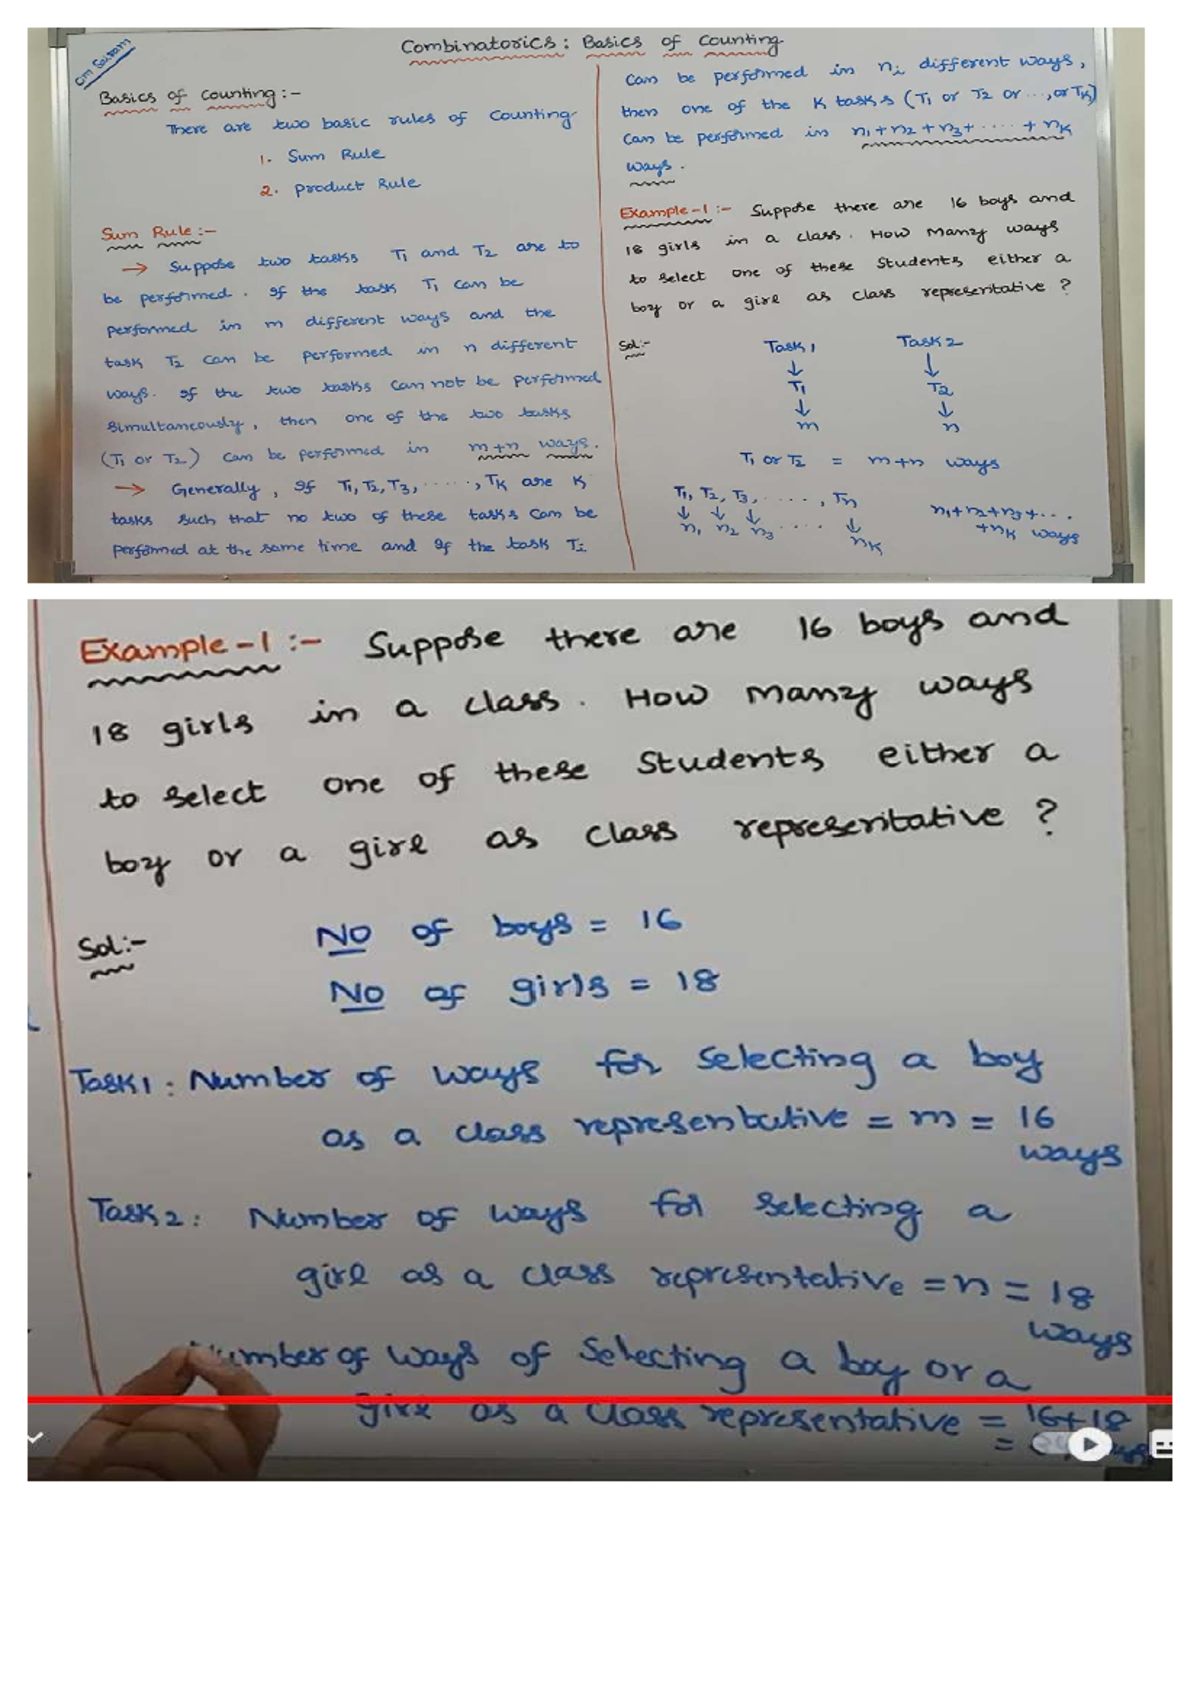 Om Sairam
Combinatorics: Basics of Counting
Basics of Counting :-
There are two basic rules of Counting
1. Sum Rule
2. Product Rule
Sum Rule :-
→ Suppose two tasks T1 and T2 are to
be performed. If the task T1 can be
performed in m different ways and the
task T2 can be performed in n different
ways. If the two tasks can not be performed
simultaneously, then one of the two tasks
(T1 or T2) can be performed in m+n ways.
→ Generally, If T1, T2, T3, ......, TK are K
tasks such that no two of these tasks can be
performed at the same time and If the task Ti
can be performed in ni different ways,
then one of the K tasks (T1 or T2 or ..., or TK)
can be performed in n1+n2+n3+ ..... + nK
ways.
Example-1 :- Suppose there are 16 boys and
18 girls in a class. How Many ways
to select one of these Students either a
boy or a girl as class representative ?
Sol:-
Task1 Task2
↓ ↓
T1 T2
↓ ↓
m n
T1 or T2 = m+n ways
T1, T2, T3, ....., Tn
↓ ↓ ↓ ↓
n1 n2 n3 .... nK
n1+n2+n3+...
+nK ways
Example-1 :- Suppose there are 16 boys and
18 girls in a class. How Many ways
to select one of these Students either a
boy or a girl as class representative ?
Sol:-
No of boys = 16
No of girls = 18
Task1 : Number of ways for selecting a boy
as a class representative = m = 16
ways
Task2 : Number of ways for selecting a
girl as a class representative = n = 18
ways
Number of ways of Selecting a boy or a
girl as a class representative = 16+18
=